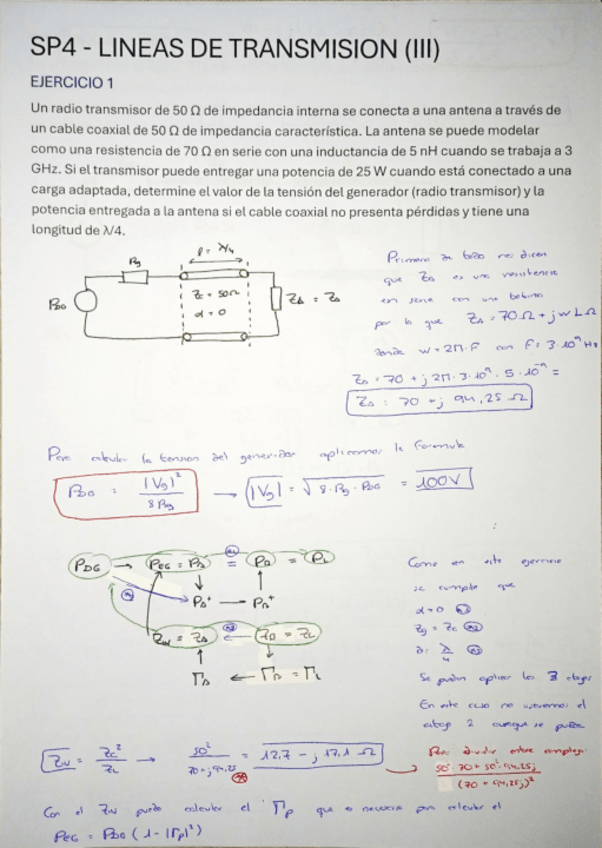 SP4 - LINEAS DE TRANSMISION (III)
EJERCICIO 1
Un radio transmisor de 50 Ω de impedancia interna se conecta a una antena a través de
un cable coaxial de 50 Ω de impedancia característica. La antena se puede modelar
como una resistencia de 70 Ω en serie con una inductancia de 5 nH cuando se trabaja a 3
GHz. Si el transmisor puede entregar una potencia de 25 W cuando está conectado a una
carga adaptada, determine el valor de la tensión del generador (radio transmisor) y la
potencia entregada a la antena si el cable coaxial no presenta pérdidas y tiene una
longitud de λ/4.
l = λ/4
Rg
Zc = 50Ω
α = 0
Primero de todo nos dicen
que es una resistencia
en serie con una bobina
por lo que = 70Ω + jωLΩ
donde ω = 2π·f con f = 3·10⁹ Hz
= 70 + j 2π·3·10⁹·5·10⁻⁹ =
70 + j 94,25 Ω
Para calcular la tension del generador aplicamos la formula
|Vg|²
8 Rg
→ |Vg| = √8·Rg· = 100V
PDG → PEG =
Como en este ejercicio
se cumple que
α = 0
Zg = Zc
λ/4
Se pueden aplicar los 3 atajos
En este caso no usaremos el
atajo 2 aunque se puede
Zc²/ZL → 50²/70+j94,25 = 12,7 - j 17,1 Ω
Para dividir entre complejo
50²·70 + 50²·94,25j
(70 + 94,25j)²
Con el puedo calcular el que es necesario para calcular el
(1-|Γρ|²)